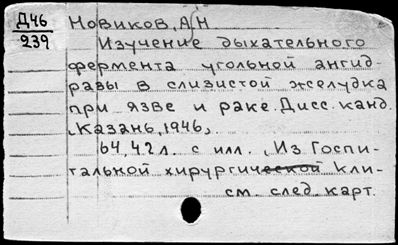 Д46
239
Новиков, А.Н
Изучение дыхательного
фермента угольной ангид-
разы в слизистой желудка
при язве и раке. Дисс. канд.
Казань, 1946,
64, 42 л. с илл. (Из Госпи-
тальной хирургической кли-
см. след. карт.